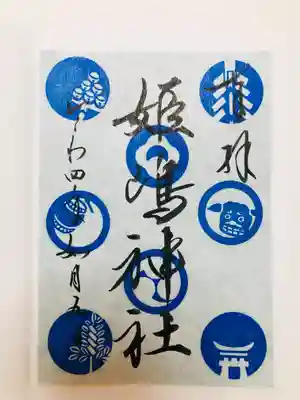 奉拝
姫嶋神社
令和四年如月五